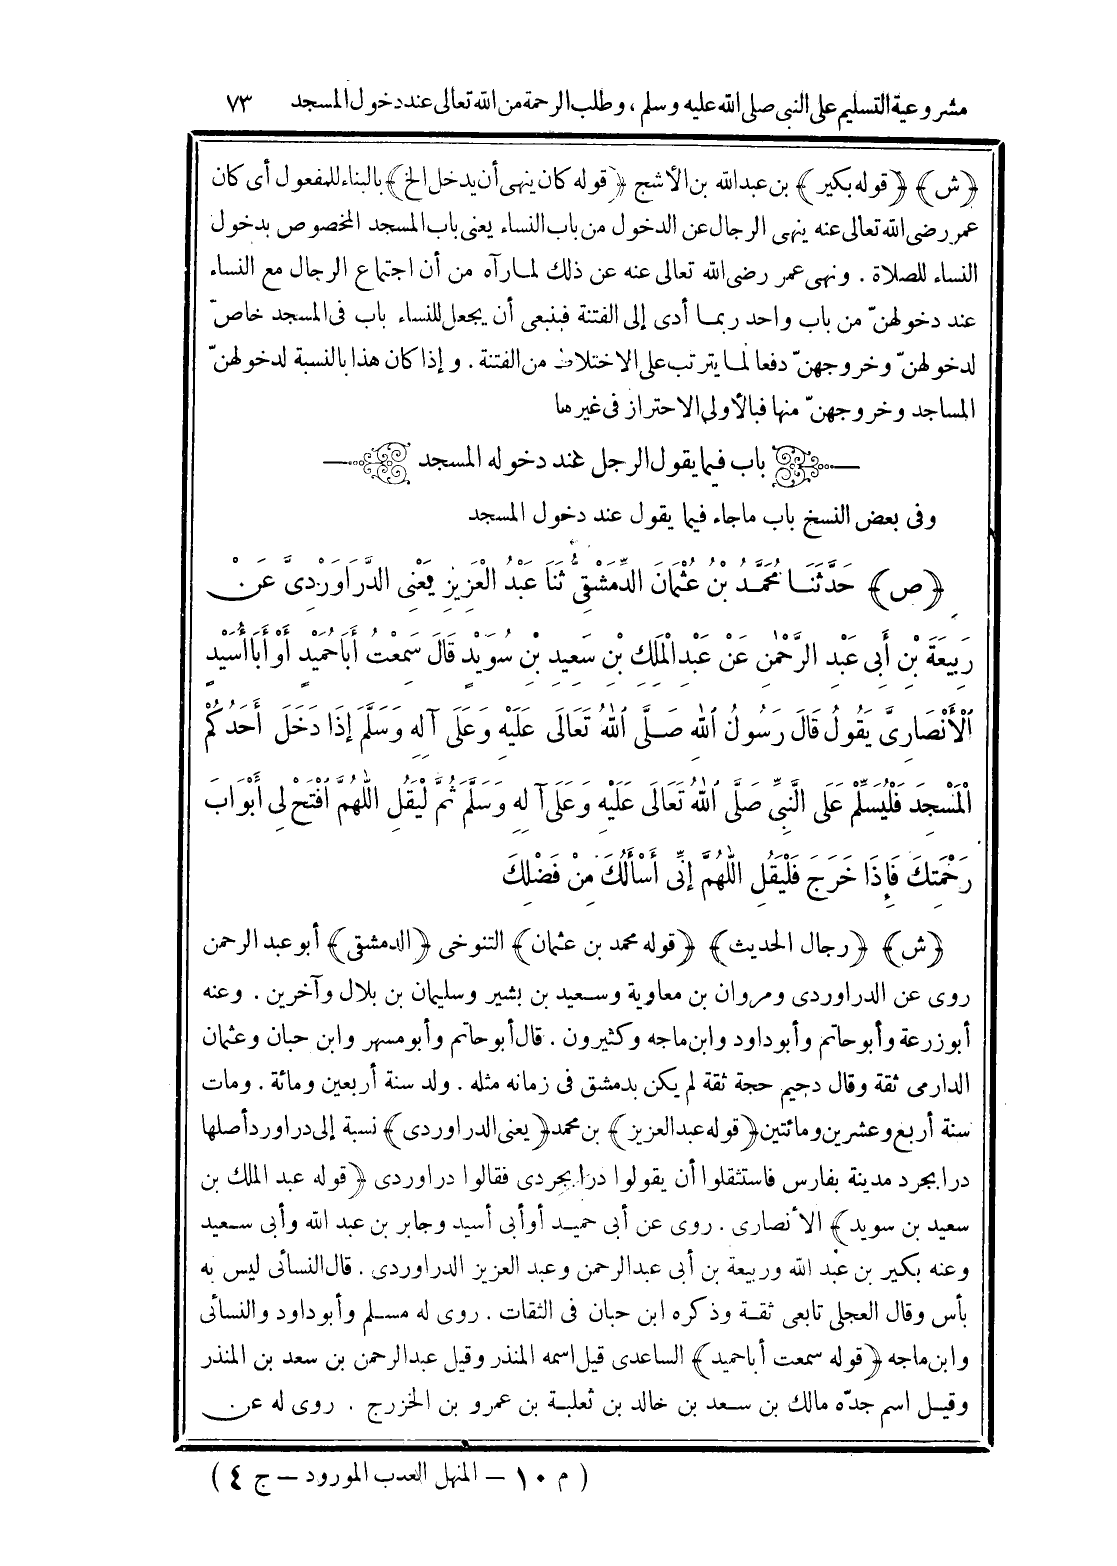 مشروعية التسليم على النبي صلى الله عليه وسلم، وطلب الرحمة من الله تعالى عند دخول المسجد ٧٣
﴿ش﴾ ﴿قوله بكير﴾ بن عبدالله بن الأشج ﴿قوله كان ينهى أن يدخل الخ﴾ بالبناء للمفعول أى كان
عمر رضى الله تعالى عنه ينهى الرجال عن الدخول من باب النساء يعنى باب المسجد المخصوص بدخول
النساء للصلاة . ونهى عمر رضى الله تعالى عنه عن ذلك لما رآه من أن اجتماع الرجال مع النساء
عند دخولهنّ من باب واحد ربمـا أدى إلى الفتنة فينبغى أن يجعل للنساء باب فى المسجد خاصّ
لدخولهنّ وخروجهنّ دفعا لمـا يترتب على الاختلاط من الفتنة . وإذا كان هذا بالنسبة لدخولهنّ
المساجد وخروجهنّ منها فبالأولى الاحتراز فى غيرها
باب فيما يقول الرجل عند دخوله المسجد
وفى بعض النسخ باب ماجاء فيما يقول عند دخول المسجد
﴿ص﴾ حَدَّثَنَـا مُحَمَّـدُ بْنُ عُثْمَانَ الدِّمَشْقِىُّ ثَنَا عَبْدُ الْعَزِيزِ يَعْنِى الدَّرَاوَرْدِىَّ عَنْ
رَبِيعَةَ بْنِ أَبِى عَبْدِ الرَّحْمٰنِ عَنْ عَبْدِ الْمَلِكِ بْنِ سَعِيدِ بْنِ سُوَيْدٍ قَالَ سَمِعْتُ أَبَاحُمَيْدٍ أَوْ أَبَا أُسَيْدٍ
الْأَنْصَارِىَّ يَقُولُ قَالَ رَسُولُ اللهِ صَـلَّى اللهُ تَعَالَى عَلَيْهِ وَعَلَى آلِهِ وَسَلَّمَ إِذَا دَخَلَ أَحَدُكُمُ
الْمَسْجِدَ فَلْيُسَلِّمْ عَلَى النَّبِىِّ صَلَّى اللهُ تَعَالَى عَلَيْهِ وَعَلَى آلِهِ وَسَلَّمَ ثُمَّ لْيَقُلِ اللّٰهُمَّ افْتَحْ لِى أَبْوَابَ
رَحْمَتِكَ فَإِذَا خَرَجَ فَلْيَقُلِ اللّٰهُمَّ إِنِّى أَسْأَلُكَ مِنْ فَضْلِكَ
﴿ش﴾ ﴿رجال الحديث﴾ ﴿قوله محمد بن عثمان﴾ التنوخى ﴿الدمشقى﴾ أبو عبد الرحمن
روى عن الدراوردى ومروان بن معاوية وسـعيد بن بشير وسليمان بن بلال وآخرين . وعنه
أبوزرعة وأبوحاتم وأبوداود وابن ماجه وكثيرون . قال أبوحاتم وأبو مسهر وابن حبان وعثمان
الدارمى ثقة وقال دحيم حجة ثقة لم يكن بدمشق فى زمانه مثله . ولد سنة أربعين ومائة . ومات
سنة أربع وعشرين ومائتين ﴿قوله عبدالعزيز﴾ بن محمد ﴿يعنى الدراوردى﴾ نسبة إلى دراورد أصلها
درابجرد مدينة بفارس فاستثقلوا أن يقولوا درابجردى فقالوا دراوردى ﴿قوله عبد الملك بن
سعيد بن سويد﴾ الأنصارى . روى عن أبى حميـد أو أبى أسيد وجابر بن عبد الله وأبى سـعيد
وعنه بكير بن عبد الله وربيعة بن أبى عبدالرحمن وعبد العزيز الدراوردى . قال النسائى ليس به
بأس وقال العجلى تابعى ثقـة وذكره ابن حبان فى الثقات . روى له مسـلم وأبوداود والنسائى
وابن ماجه ﴿قوله سمعت أباحميد﴾ الساعدى قيل اسمه المنذر وقيل عبدالرحمن بن سعد بن المنذر
وقيـل اسم جدّه مالك بن سـعد بن خالد بن ثعلبـة بن عمرو بن الخزرج . روى له عن
( م ١٠ – المنهل العذب المورود – ج ٤ )